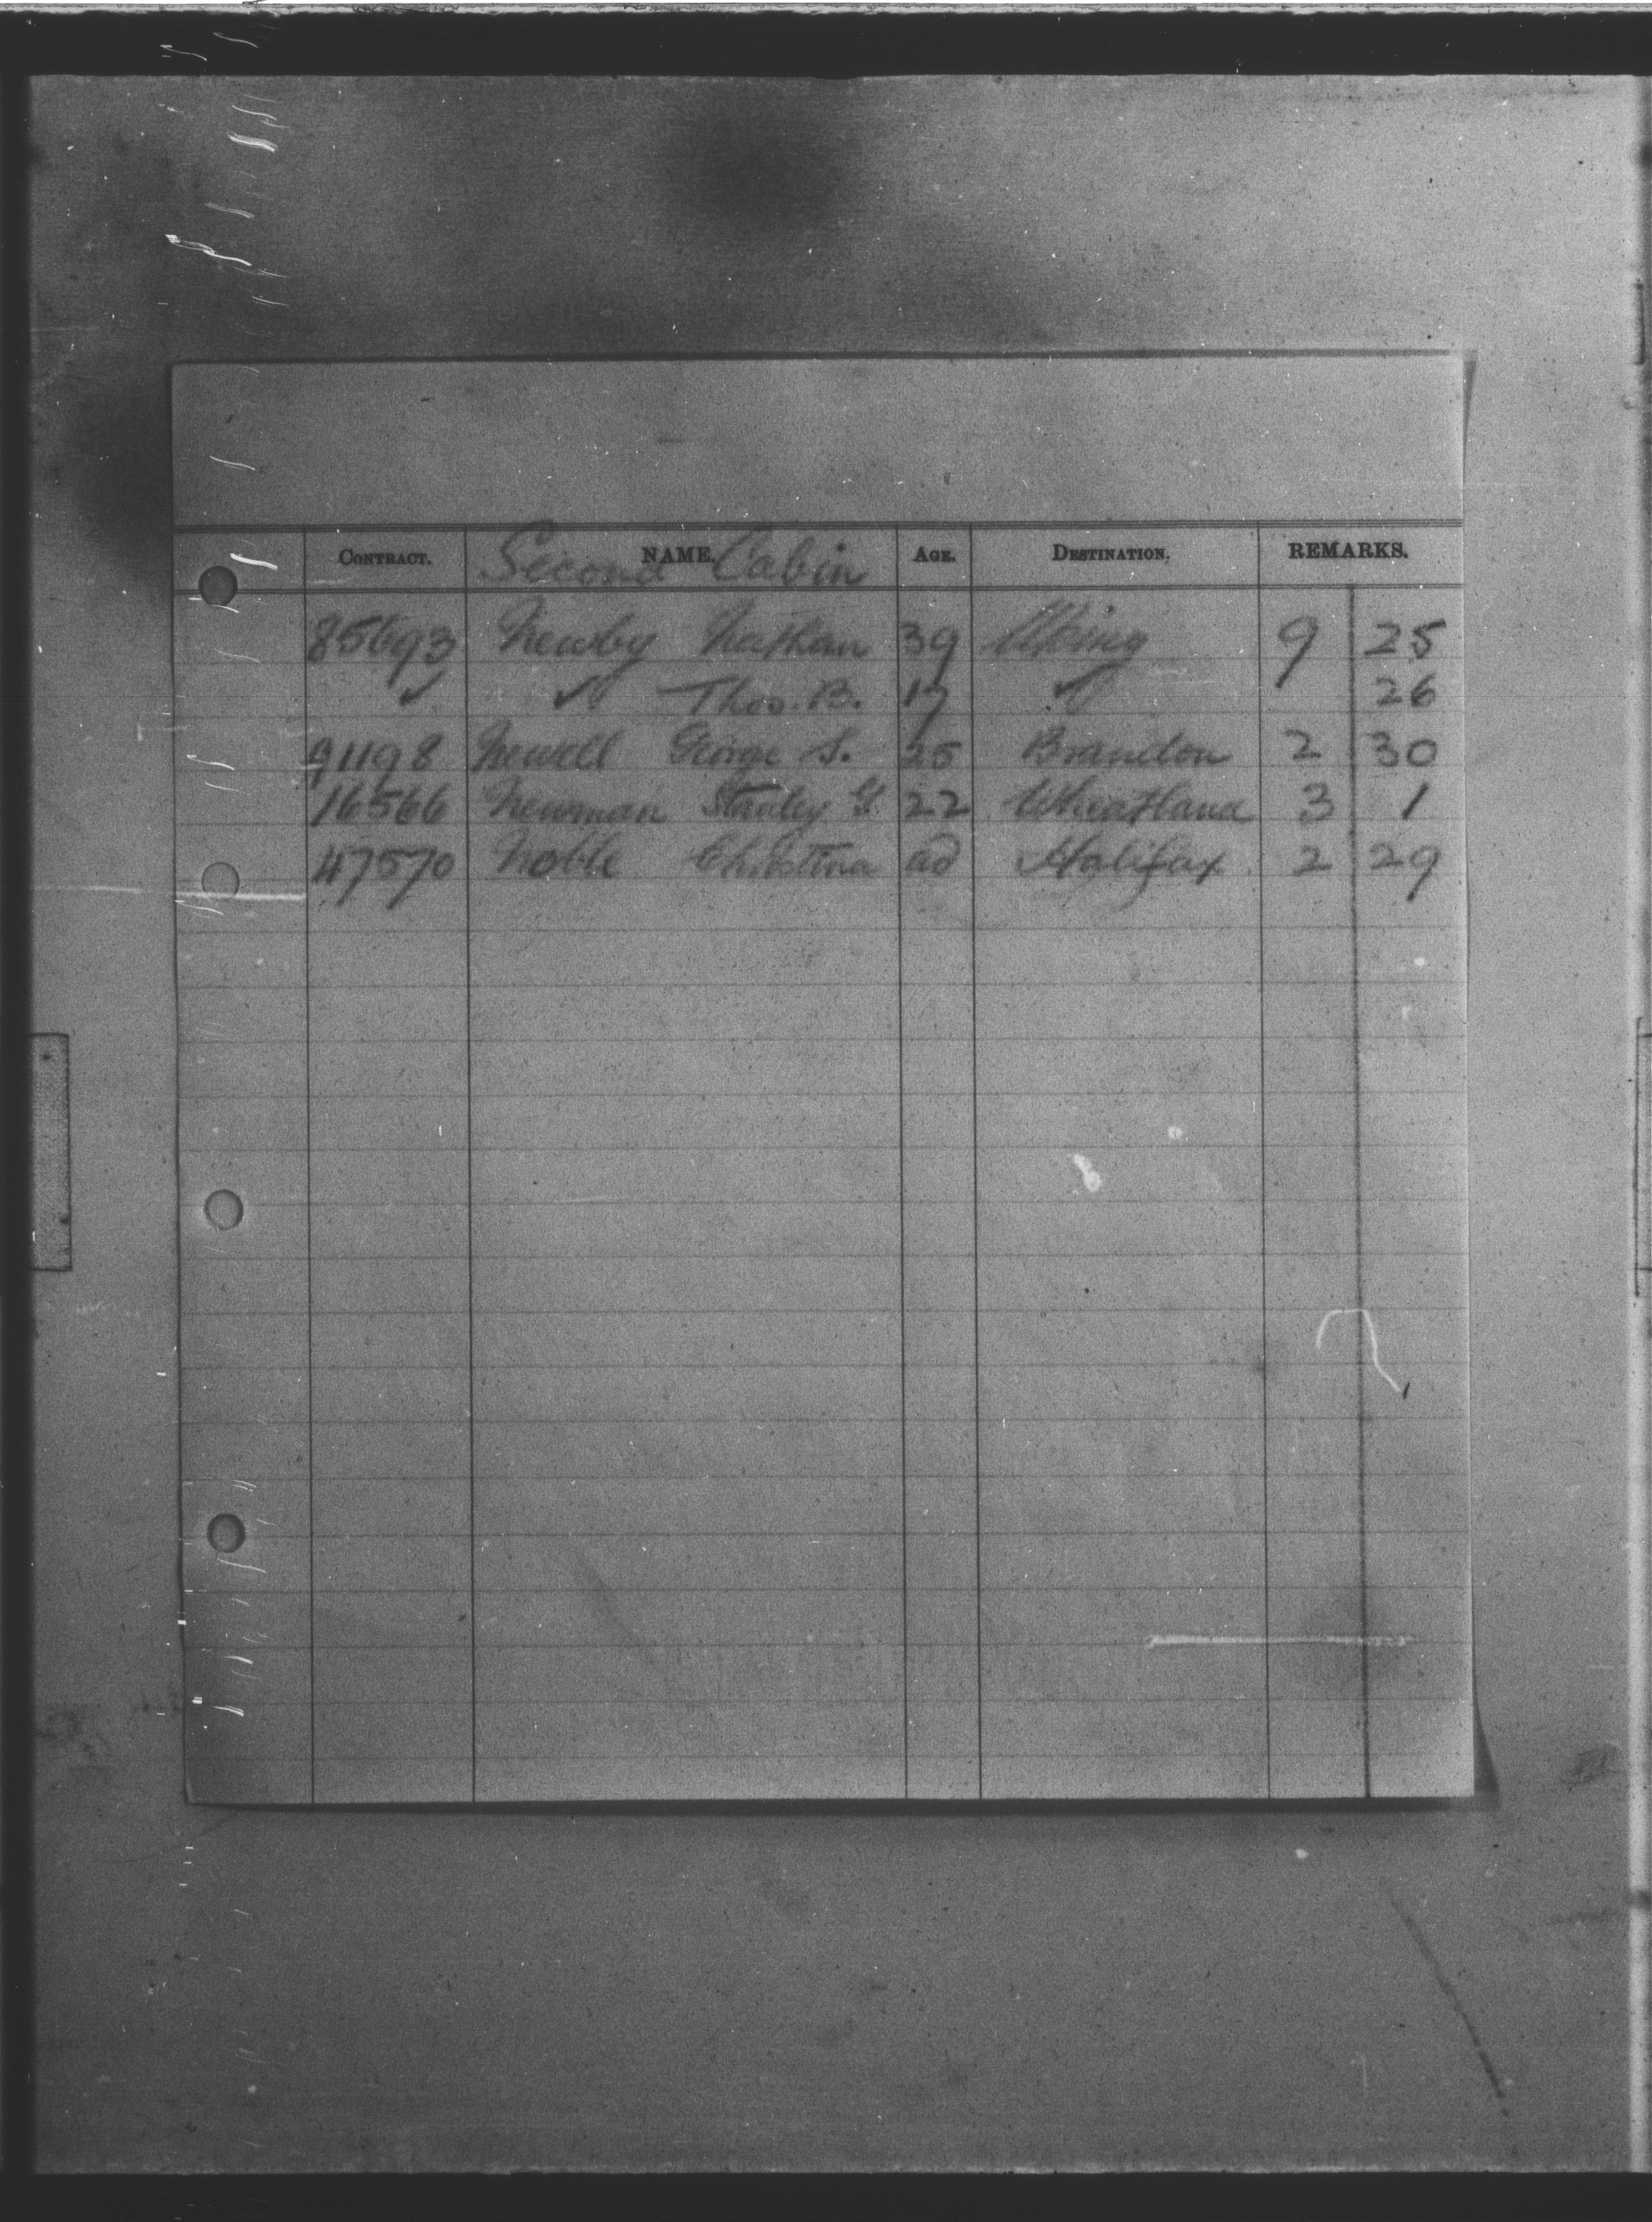 CONTRACT. NAME. AGE. DESTINATION. REMARKS.
Second Cabin
85693 Newby Nathan 39 9 25
✓ ✓ Thos. B. 17 ✓ 26
91198 Newell George S. 25 Brandon 2 30
16566 Newman Stanley G. 22 Wheatland 3 1
47570 Noble Christina ad Halifax 2 29